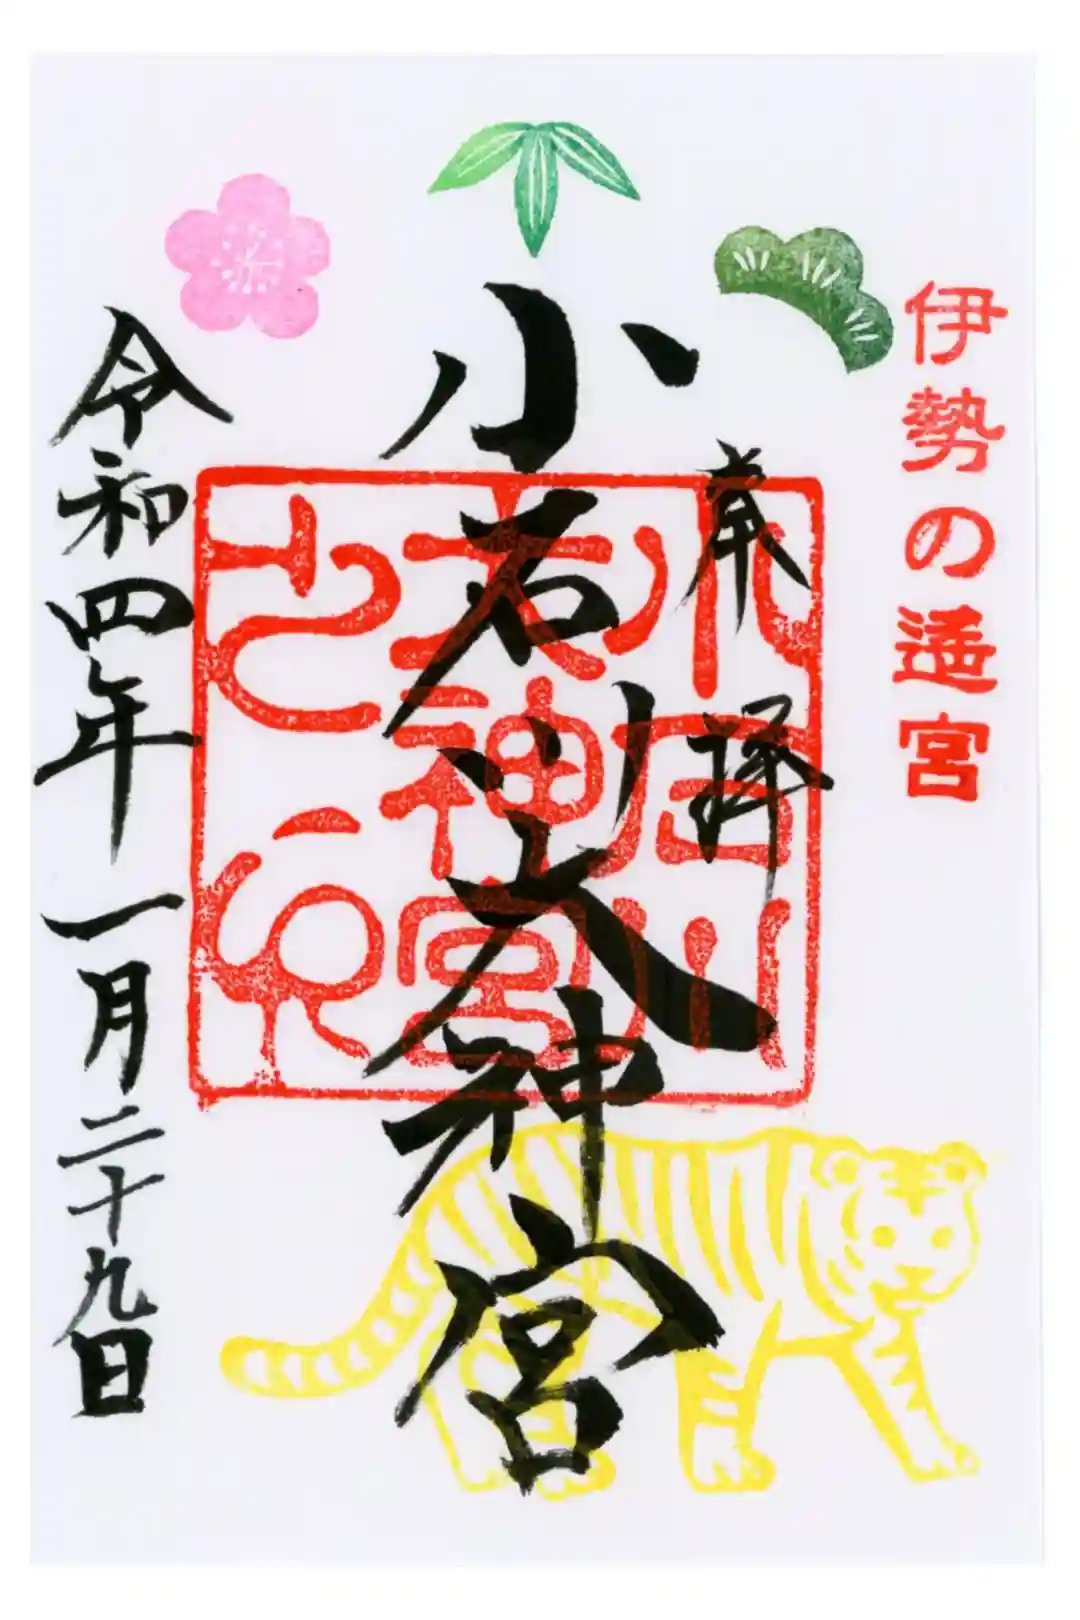 伊勢の遥宮
奉拝
小石川大神宮
小石川
大神宮
之印
令和四年一月二十九日